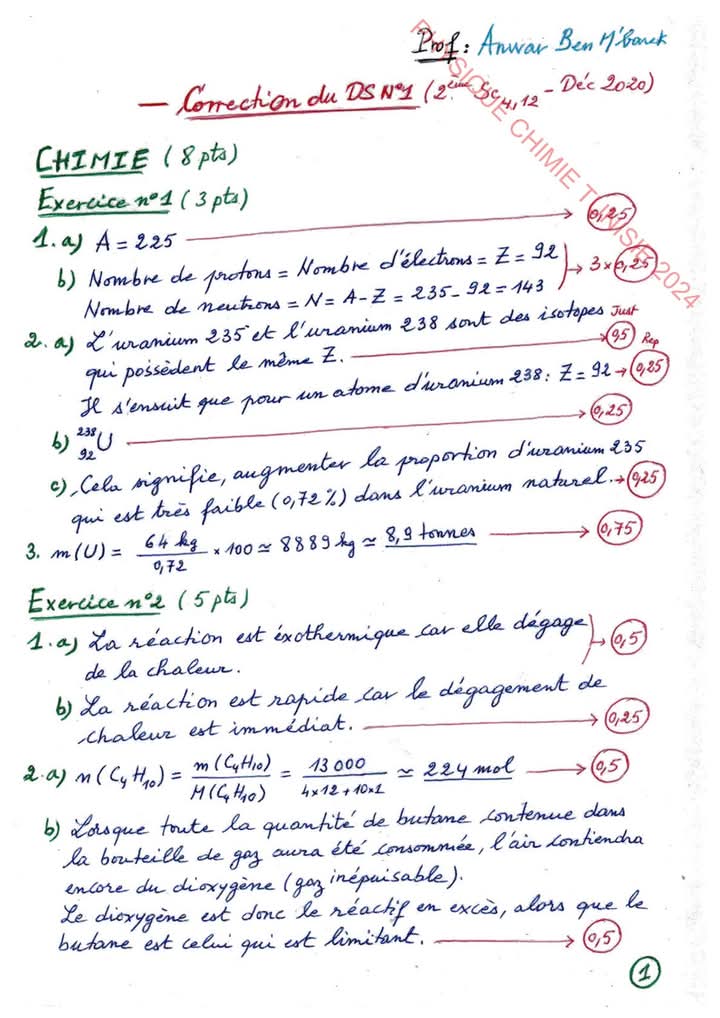 Prof: Anwar Ben M'barek
PHYSIQUE CHIMIE TUNISIE 2024
— Correction du DS N°1 (2ème Sc 4,12 - Déc 2020)
CHIMIE (8 pts)
Exercice n°1 (3 pts)
1. a) A = 225 → 0,25
b) Nombre de protons = Nombre d'électrons = Z = 92
Nombre de neutrons = N = A - Z = 235 - 92 = 143 → 3 × 0,25
2. a) L'uranium 235 et l'uranium 238 sont des isotopes Just
qui possèdent le même Z. → 0,5 Rep
Il s'ensuit que pour un atome d'uranium 238 : Z = 92 → 0,25
b) ²³⁸₉₂U → 0,25
c) Cela signifie, augmenter la proportion d'uranium 235
qui est très faible (0,72 %) dans l'uranium naturel. → 0,25
3. m(U) = 64 kg / 0,72 × 100 ≃ 8889 kg ≃ 8,9 tonnes → 0,75
Exercice n°2 (5 pts)
1. a) La réaction est éxothermique car elle dégage
de la chaleur. → 0,5
b) La réaction est rapide car le dégagement de
chaleur est immédiat. → 0,25
2. a) n(C₄H₁₀) = m(C₄H₁₀) / M(C₄H₁₀) = 13 000 / 4×12 + 10×1 ≃ 224 mol → 0,5
b) Lorsque toute la quantité de butane contenue dans
la bouteille de gaz aura été consommée, l'air contiendra
encore du dioxygène (gaz inépuisable).
Le dioxygène est donc le réactif en excès, alors que le
butane est celui qui est limitant. → 0,5
1